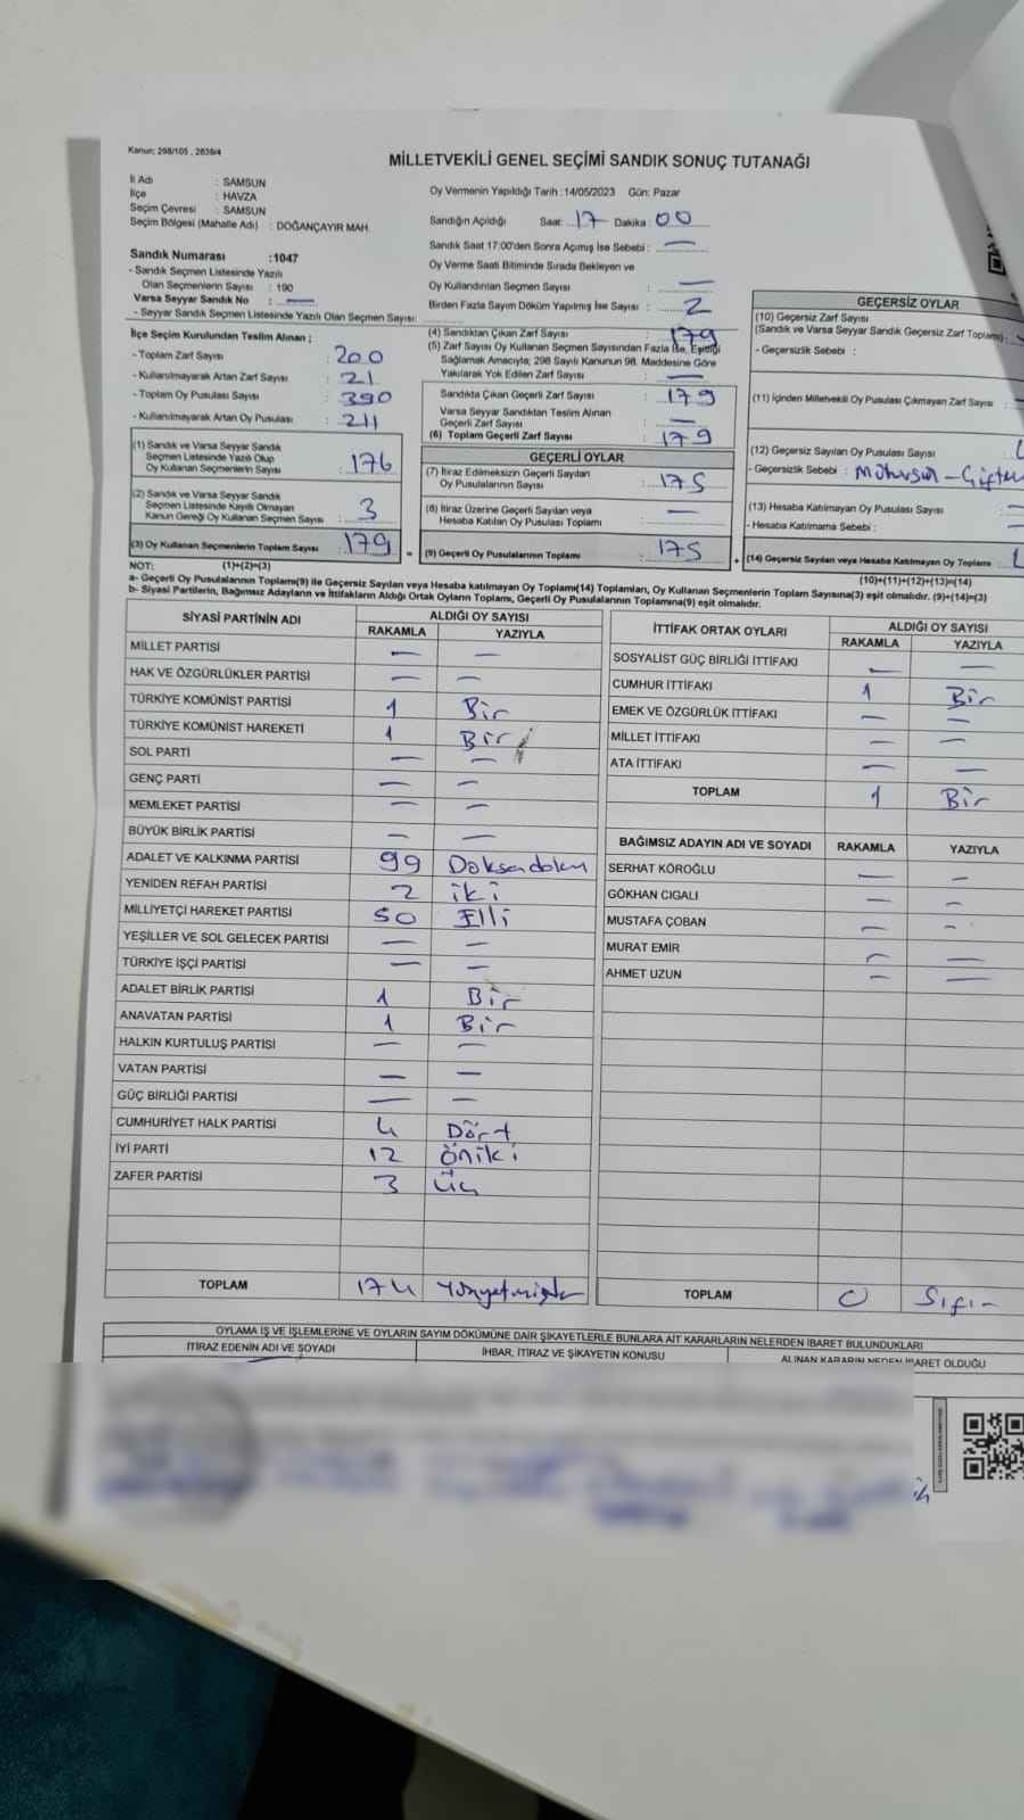 Kanun: 298/105 , 2839/4
MİLLETVEKİLİ GENEL SEÇİMİ SANDIK SONUÇ TUTANAĞI
İl Adı : SAMSUN
İlçe : HAVZA
Seçim Çevresi : SAMSUN
Seçim Bölgesi (Mahalle Adı) : DOĞANÇAYIR MAH.
Oy Vermenin Yapıldığı Tarih :14/05/2023 Gün: Pazar
Sandığın Açıldığı Saat: 17 Dakika: 00
Sandık Saat 17:00'den Sonra Açılmış İse Sebebi : —
Oy Verme Saati Bitiminde Sırada Bekleyen ve
Oy Kullandırılan Seçmen Sayısı : —
Birden Fazla Sayım Döküm Yapılmış İse Sayısı : 2
Sandık Numarası :1047
- Sandık Seçmen Listesinde Yazılı
Olan Seçmenlerin Sayısı : 190
Varsa Seyyar Sandık No : —
- Seyyar Sandık Seçmen Listesinde Yazılı Olan Seçmen Sayısı:
İlçe Seçim Kurulundan Teslim Alınan ;
- Toplam Zarf Sayısı : 200
- Kullanılmayarak Artan Zarf Sayısı : 21
- Toplam Oy Pusulası Sayısı : 390
- Kullanılmayarak Artan Oy Pusulası : 211
(1) Sandık ve Varsa Seyyar Sandık
Seçmen Listesinde Yazılı Olup
Oy Kullanan Seçmenlerin Sayısı : 176
(2) Sandık ve Varsa Seyyar Sandık
Seçmen Listesinde Kayıtlı Olmayan
Kanun Gereği Oy Kullanan Seçmen Sayısı : 3
(3) Oy Kullanan Seçmenlerin Toplam Sayısı : 179
(4) Sandıktan Çıkan Zarf Sayısı : 179
(5) Zarf Sayısı Oy Kullanan Seçmen Sayısından Fazla İse, Eşitliği
Sağlamak Amacıyla; 298 Sayılı Kanunun 98. Maddesine Göre
Yakılarak Yok Edilen Zarf Sayısı : —
Sandıkta Çıkan Geçerli Zarf Sayısı : 179
Varsa Seyyar Sandıktan Teslim Alınan
Geçerli Zarf Sayısı : —
(6) Toplam Geçerli Zarf Sayısı : 179
GEÇERLİ OYLAR
(7) İtiraz Edilmeksizin Geçerli Sayılan
Oy Pusulalarının Sayısı : 175
(8) İtiraz Üzerine Geçerli Sayılan veya
Hesaba Katılan Oy Pusulası Toplamı : —
= (9) Geçerli Oy Pusulalarının Toplamı : 175
GEÇERSİZ OYLAR
(10) Geçersiz Zarf Sayısı
(Sandık ve Varsa Seyyar Sandık Geçersiz Zarf Toplamı) :
- Geçersizlik Sebebi :
(11) İçinden Milletvekili Oy Pusulası Çıkmayan Zarf Sayısı :
(12) Geçersiz Sayılan Oy Pusulası Sayısı
- Geçersizlik Sebebi :
(13) Hesaba Katılmayan Oy Pusulası Sayısı
- Hesaba Katılmama Sebebi :
+ (14) Geçersiz Sayılan veya Hesaba Katılmayan Oy Toplamı :
NOT: (1)+(2)=(3)
(10)+(11)+(12)+(13)=(14)
a- Geçerli Oy Pusulalarının Toplamı(9) ile Geçersiz Sayılan veya Hesaba katılmayan Oy Toplamı(14) Toplamları, Oy Kullanan Seçmenlerin Toplam Sayısına(3) eşit olmalıdır. (9)+(14)=(3)
b- Siyasi Partilerin, Bağımsız Adayların ve İttifakların Aldığı Ortak Oyların Toplamı, Geçerli Oy Pusulalarının Toplamına(9) eşit olmalıdır.
SİYASİ PARTİNİN ADI ALDIĞI OY SAYISI
RAKAMLA YAZIYLA
MİLLET PARTİSİ — —
HAK VE ÖZGÜRLÜKLER PARTİSİ — —
TÜRKİYE KOMÜNİST PARTİSİ 1 Bir
TÜRKİYE KOMÜNİST HAREKETİ 1 Bir
SOL PARTİ — —
GENÇ PARTİ — —
MEMLEKET PARTİSİ — —
BÜYÜK BİRLİK PARTİSİ — —
ADALET VE KALKINMA PARTİSİ 99
YENİDEN REFAH PARTİSİ 2 iki
MİLLİYETÇİ HAREKET PARTİSİ 50 Elli
YEŞİLLER VE SOL GELECEK PARTİSİ — —
TÜRKİYE İŞÇİ PARTİSİ — —
ADALET BİRLİK PARTİSİ 1 Bir
ANAVATAN PARTİSİ 1 Bir
HALKIN KURTULUŞ PARTİSİ — —
VATAN PARTİSİ — —
GÜÇ BİRLİĞİ PARTİSİ — —
CUMHURİYET HALK PARTİSİ 4 Dört
İYİ PARTİ 12 Öniki
ZAFER PARTİSİ 3 Üç
TOPLAM 174
İTTİFAK ORTAK OYLARI ALDIĞI OY SAYISI
RAKAMLA YAZIYLA
SOSYALİST GÜÇ BİRLİĞİ İTTİFAKI — —
CUMHUR İTTİFAKI 1 Bir
EMEK VE ÖZGÜRLÜK İTTİFAKI — —
MİLLET İTTİFAKI — —
ATA İTTİFAKI — —
TOPLAM 1 Bir
BAĞIMSIZ ADAYIN ADI VE SOYADI RAKAMLA YAZIYLA
SERHAT KÖROĞLU — —
GÖKHAN CIGALI — —
MUSTAFA ÇOBAN — —
MURAT EMİR — —
AHMET UZUN — —
TOPLAM 0 Sıfır
OYLAMA İŞ VE İŞLEMLERİNE VE OYLARIN SAYIM DÖKÜMÜNE DAİR ŞİKAYETLERLE BUNLARA AİT KARARLARIN NELERDEN İBARET BULUNDUKLARI
İTİRAZ EDENİN ADI VE SOYADI İHBAR, İTİRAZ VE ŞİKAYETİN KONUSU ALINAN KARARIN NEDEN İBARET OLDUĞU